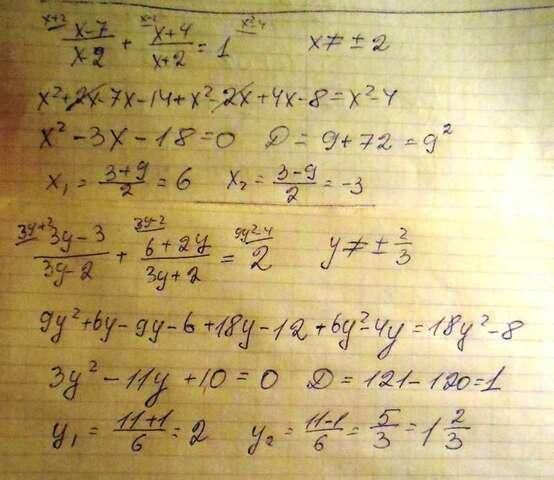 x+2 (x-7)/(x-2) + x-2 (x+4)/(x+2) = 1 x²-4 x ≠ ± 2
x²+2x-7x-14+x²-2x+4x-8=x²-4
x²-3x-18=0 D = 9+72 = 9²
x₁ = (3+9)/2 = 6 x₂ = (3-9)/2 = -3
3y+2 (3y-3)/(3y-2) + 3y-2 (6+2y)/(3y+2) = 9y²-4 2 y ≠ ± 2/3
9y²+6y-9y-6+18y-12+6y²-4y=18y²-8
3y²-11y+10=0 D = 121-120=1
y₁ = (11+1)/6 = 2 y₂ = (11-1)/6 = 5/3 = 1 2/3